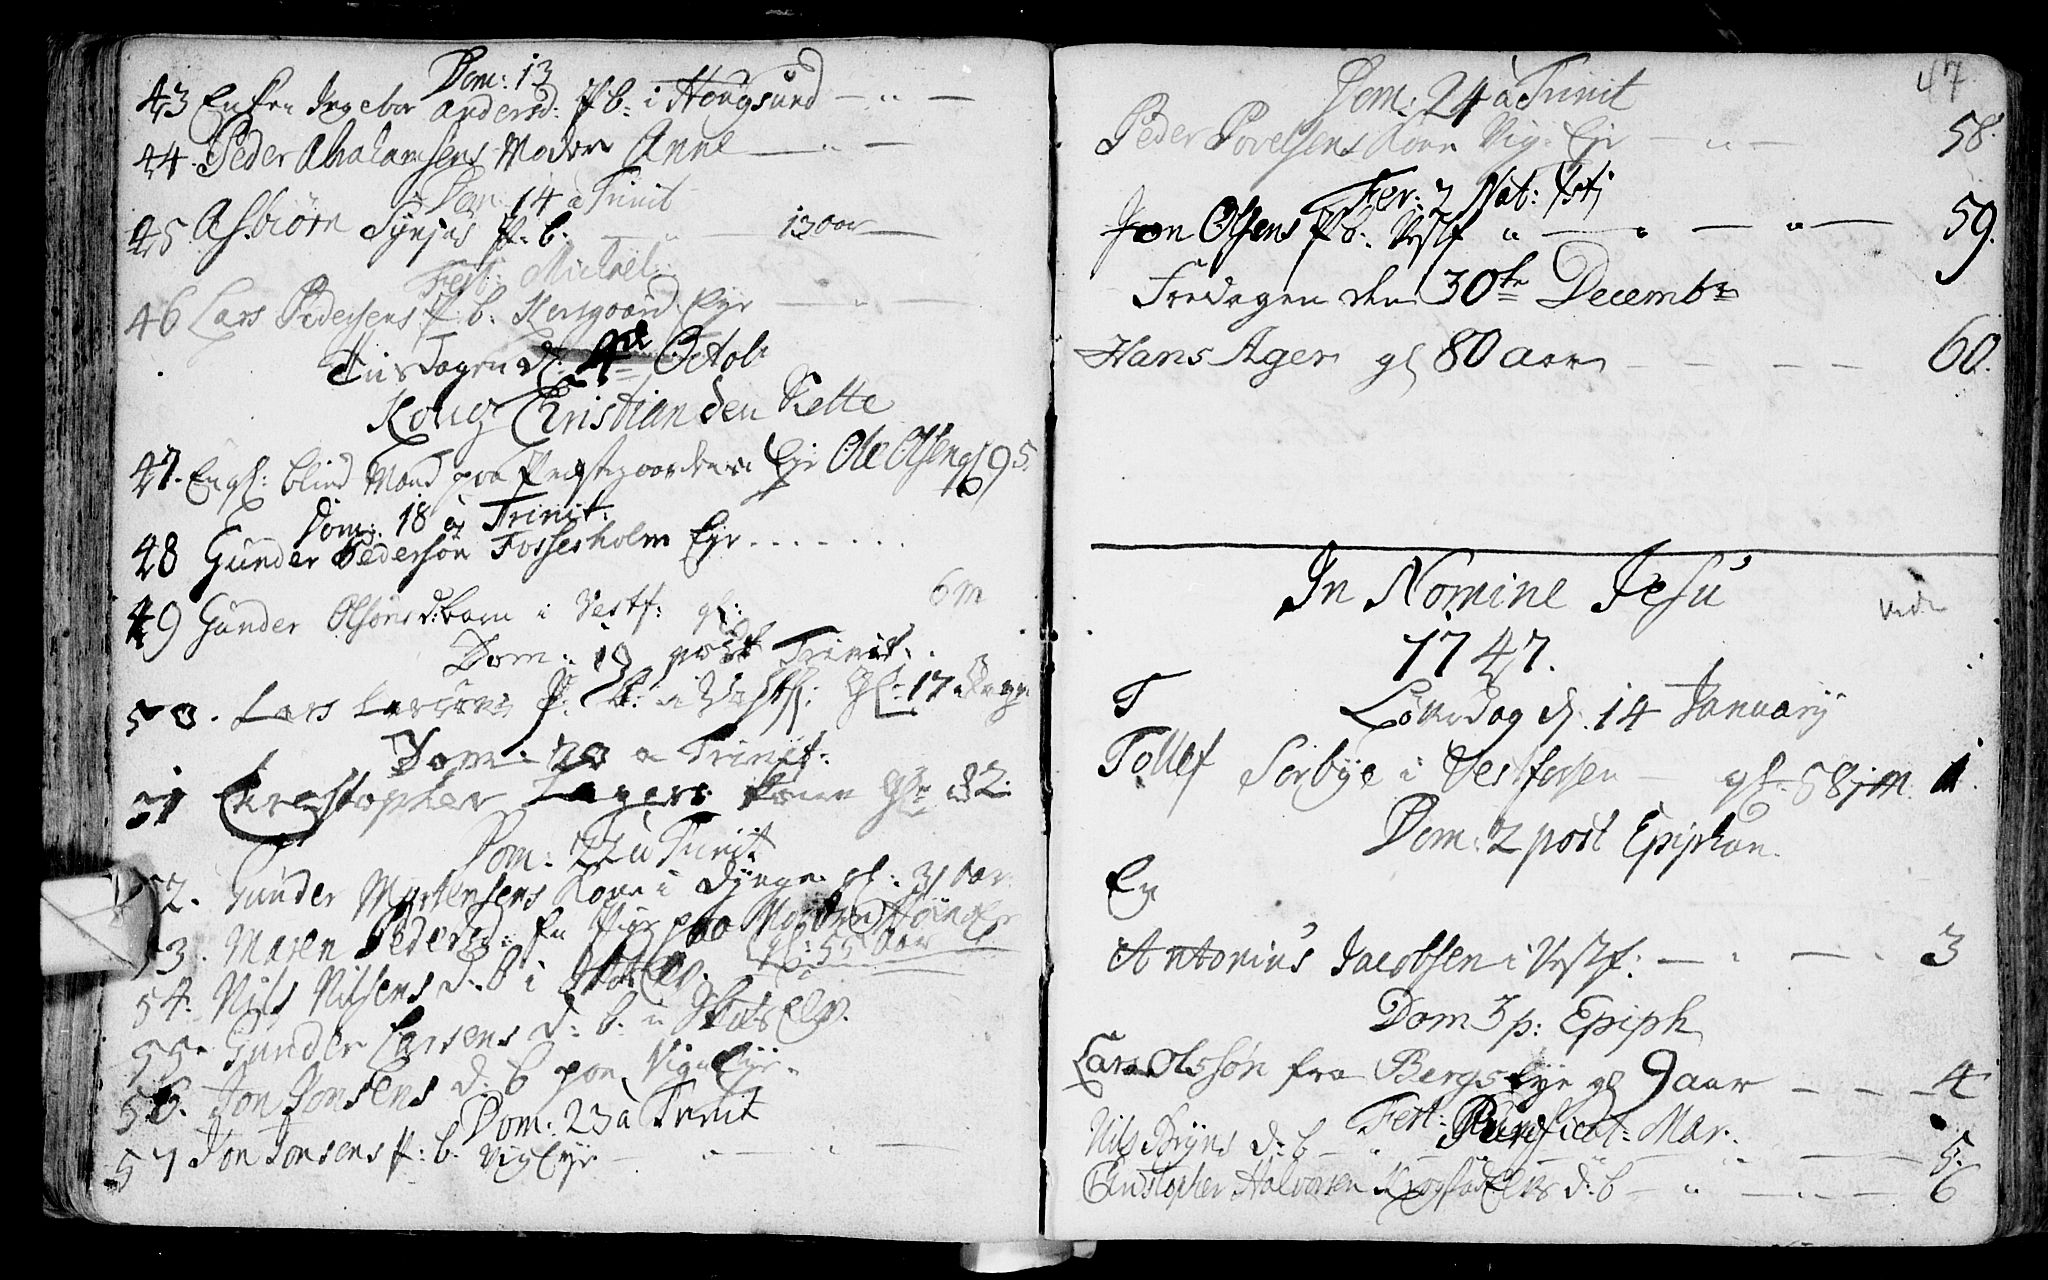 Dom: 13
43 En Enke Ingebor Andersd: P. b: i Hougsund
44. Peder Abrahamsens Moder Anne
Dom: 14 a Trinit
45. Asbiörn P. b. 13 aar
Fest: Michael:
46 Lars Pedersens P. b. Eyr
Tiisdagen d: 4de Octob
Kong Christian den Siette
47. En gl: blind Mand paa Præstegaardens Eje Ole Olsen gl 95.
Dom: 18 a Trinit:
48 Gunder Pederson Fossesholm Egr
49 Gunder Olsöns d: barn i Vestf: gl: 6 m
Dom: 19 post Trinit:
50. Lars Larsöns P: b: i Vestf: Gl: 17 dage
Dom: 20 a Trinit:
51 Christopher Lagers Kone Gl: 82.
Dom: 22 a Trinit
52. Gunder Mortensens Kone i Dynge gl: 31 aar.
53. Maren Pedersd: En Pige paa
gl: 55 aar
54. Nils Nilsens d. b i
55. Gunder Larsens d: b. i
56. Jon Jonsens d. b paa Vig Eye.
Dom: 23 a Trinit
57 Jon Jonsens P: b. Vig Eye
47
Dom: 24 a Trinit
Peder Povelsens Kone Vig. Eje 58.
Fer: 2 Nat: Xsti
Jon Olsens P b: Vestf 59.
Fredagen den 30te Decembr
Hans Ager gl 80 aar 60.
In Nomine Jesu
1747.
T
Löverdag d. 14 January
Tollef Sorbye i Vestfossen gl. 58 1.
Dom: 2 post Epiphan.
En
Antonius Jacobsen i Vestf: 3
Dom 3 p: Epiph
Lars Olssön fra Bergs Eye gl 9 aar 4
Fest: Purificat: Mar:
Nils Bryns d: b 5.
Christopher Halvorsen Krogstad Elvs d: b 6